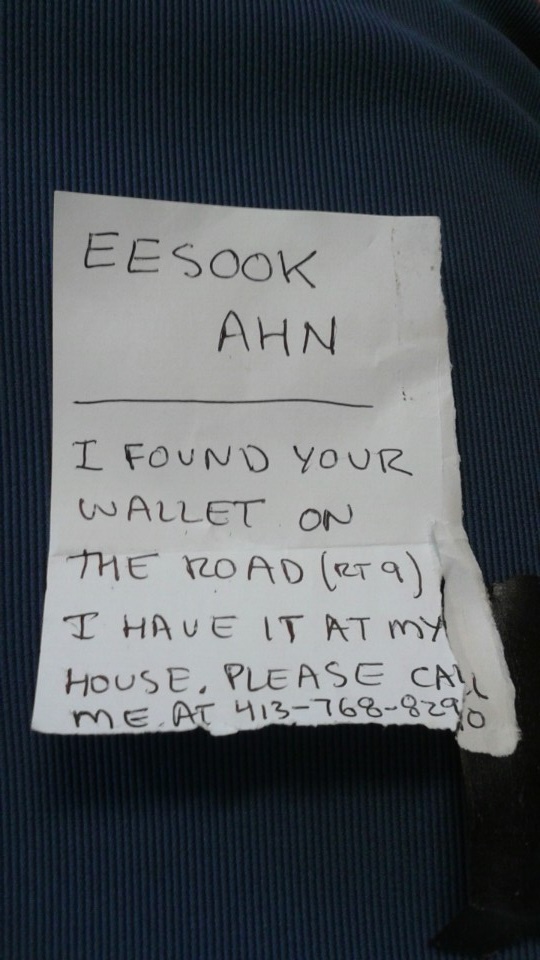 EESOOK
AHN
I FOUND YOUR
WALLET ON
THE ROAD (RT 9)
I HAVE IT AT MY
HOUSE. PLEASE CALL
ME AT 413-768-8290